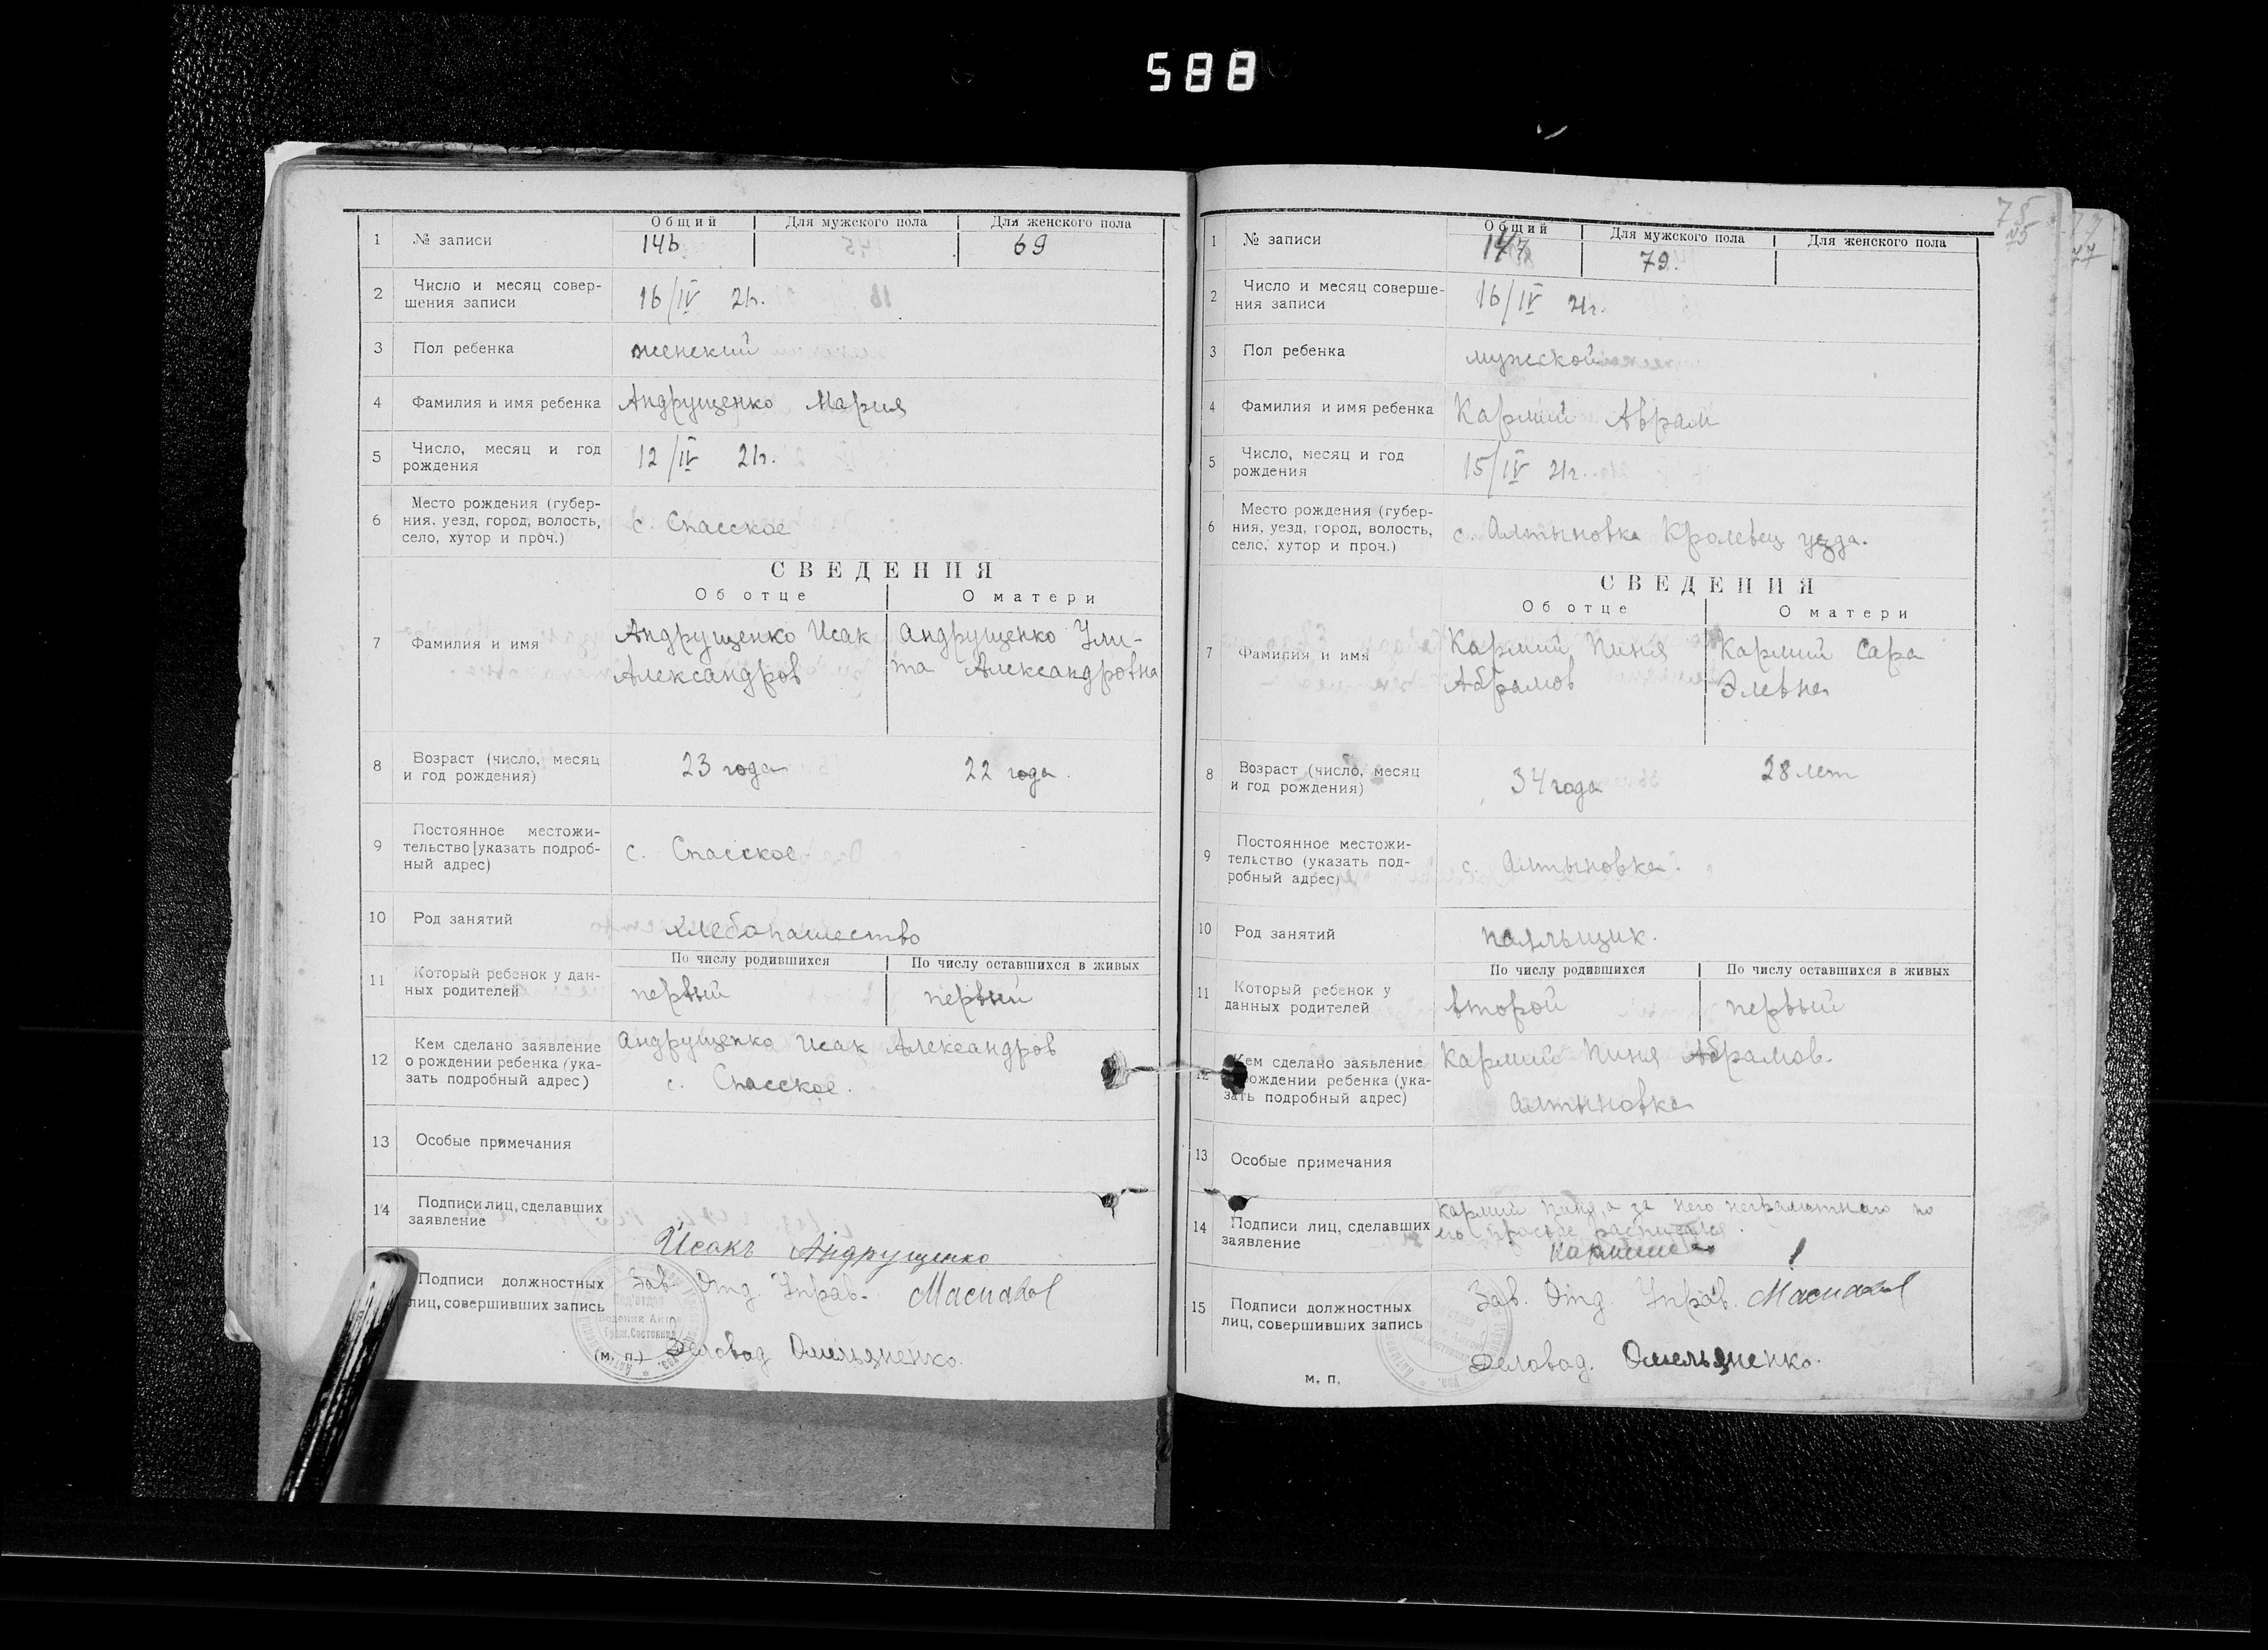 588
Общий Для мужского пола Для женского пола
1 № записи 146 69
2 Число и месяц совер-
шения записи 16/IV 21г.
3 Пол ребенка женский
4 Фамилия и имя ребенка Андрущенко Мария
5 Число, месяц и год
рождения 12/IV 21г.
6 Место рождения (губер-
ния, уезд, город, волость,
село, хутор и проч.) с. Спасское
СВЕДЕНИЯ
Об отце О матери
7 Фамилия и имя Андрущенко Исак Андрущенко Ули-
Александров та Александровна
8 Возраст (число, месяц
и год рождения) 23 года 22 года.
9 Постоянное местожи-
тельство [указать подроб-
ный адрес) с. Спасское
10 Род занятий хлебопашество
По числу родившихся По числу оставшихся в живых
11 Который ребенок у дан-
ных родителей первый первый
12 Кем сделано заявление
о рождении ребенка (ука-
зать подробный адрес) Андрущенко Исак Александров
с. Спасское.
13 Особые примечания
14 Подписи лиц, сделавших
заявление
Исакъ Андрущенко
Подписи должностных
лиц, совершивших запись Зав. Отд. Управ.
(м. п.) Деловод Омельяненко.
75
Общий Для мужского пола Для женского пола
1 № записи 147 79.
2 Число и месяц соверше-
ния записи 16/IV 21г.
3 Пол ребенка мужской
4 Фамилия и имя ребенка Кармий Аврам
5 Число, месяц и год
рождения 15/IV 21г.
6 Место рождения (губер-
ния, уезд, город, волость,
село, хутор и проч.) с. Алтыновка Кролевец. уезда.
СВЕДЕНИЯ
Об отце О матери
7 Фамилия и имя Кармий Пиня Кармий Сара
Абрамов Элевна
8 Возраст (число, месяц
и год рождения) 34 года 28 лет
9 Постоянное местожи-
тельство (указать под-
робный адрес) с. Алтыновка.
10 Род занятий паяльщик.
По числу родившихся По числу оставшихся в живых
11 Который ребенок у
данных родителей второй первый
12 Кем сделано заявление
о рождении ребенка (ука-
зать подробный адрес) Кармий Пиня Абрамов.
Алтыновка
13 Особые примечания
14 Подписи лиц, сделавших
заявление Кармий Пиня, а за него неграмотнаго по
его просьбе расписался
15 Подписи должностных
лиц, совершивших запись Зав. Отд. Управ.
Деловод. Омельяненко.
м. п.
77